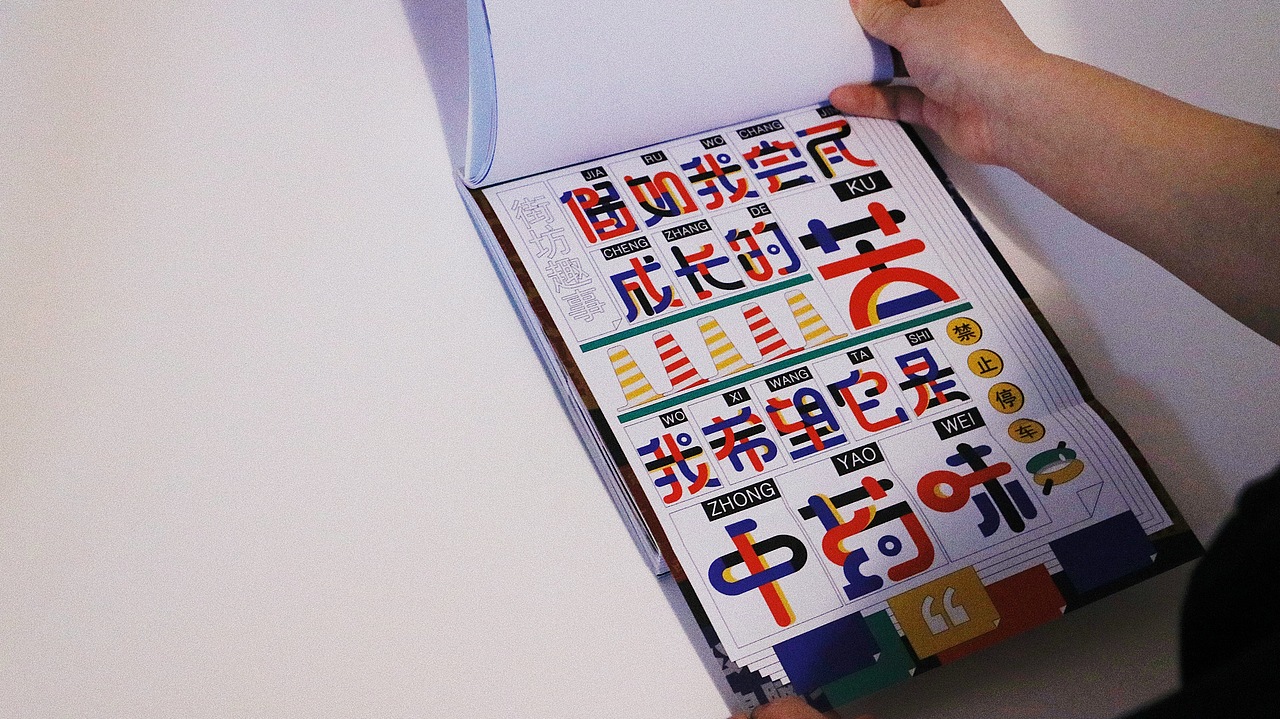 街坊
JIA RU WO CHANG JIN
假如我尝尽
CHENG ZHANG DE KU
成长的苦
WO XI WANG TA SHI
我希望它是
ZHONG YAO WEI
中药味
禁止停车
“